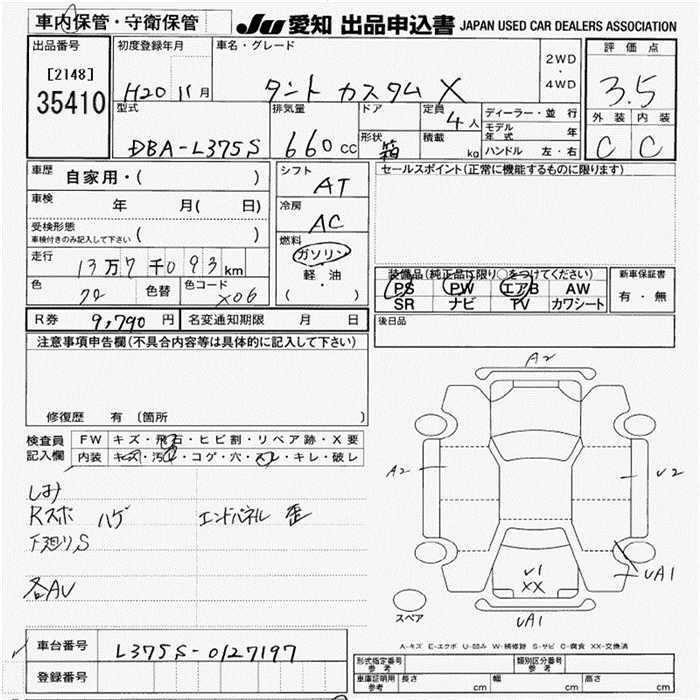 車内保管・守衛保管
JU 愛知 出品申込書 JAPAN USED CAR DEALERS ASSOCIATION
出品番号
[2148]
35410
初度登録年月
H20 年 11 月
車名・グレード
タント カスタム X
2WD
・
4WD
評価点
3.5
外装 内装
C C
型式
DBA-L375S
排気量
660 CC
ドア
形状
箱
定員
4 人
積載
kg
ディーラー・並行
モデル年式 年
ハンドル 左・右
車歴
自家用・( )
車検 年 月( 日)
受検形態
車検付きのみ記入して下さい ( )
走行
13万7千093 km
色
色替
色コード
X06
シフト
AT
冷房
AC
燃料
ガソリン
・
軽・油
( )
セールスポイント(正常に機能するものに限ります)
装備品(純正品に限り○をつけてください)
PS PW エアB AW
SR ナビ TV カワシート
新車保証書
有・無
後日品
R券 9,790 円 名変通知期限 月 日
注意事項申告欄(不具合内容等は具体的に記入して下さい)
修復歴 有 〔箇所 〕
検査員記入欄
FW キズ・飛石・ヒビ割・リペア跡・X要
内装 キズ・汚れ・コゲ・穴・スレ・キレ・破レ
しみ
Rスポ ハゲ エンドパネル 歪
下廻りS
各AU
A2
A2
U2
UA1
U1
XX
UA1
スペア
A-キズ E-エクボ U-凹み W-補修跡 S-サビ C-腐食 XX-交換済
車台番号 L375S-0127197
登録番号
形式指定番号 参考
類別区分番号 参考
車庫証明用 参考
長さ cm 幅 cm 高さ cm